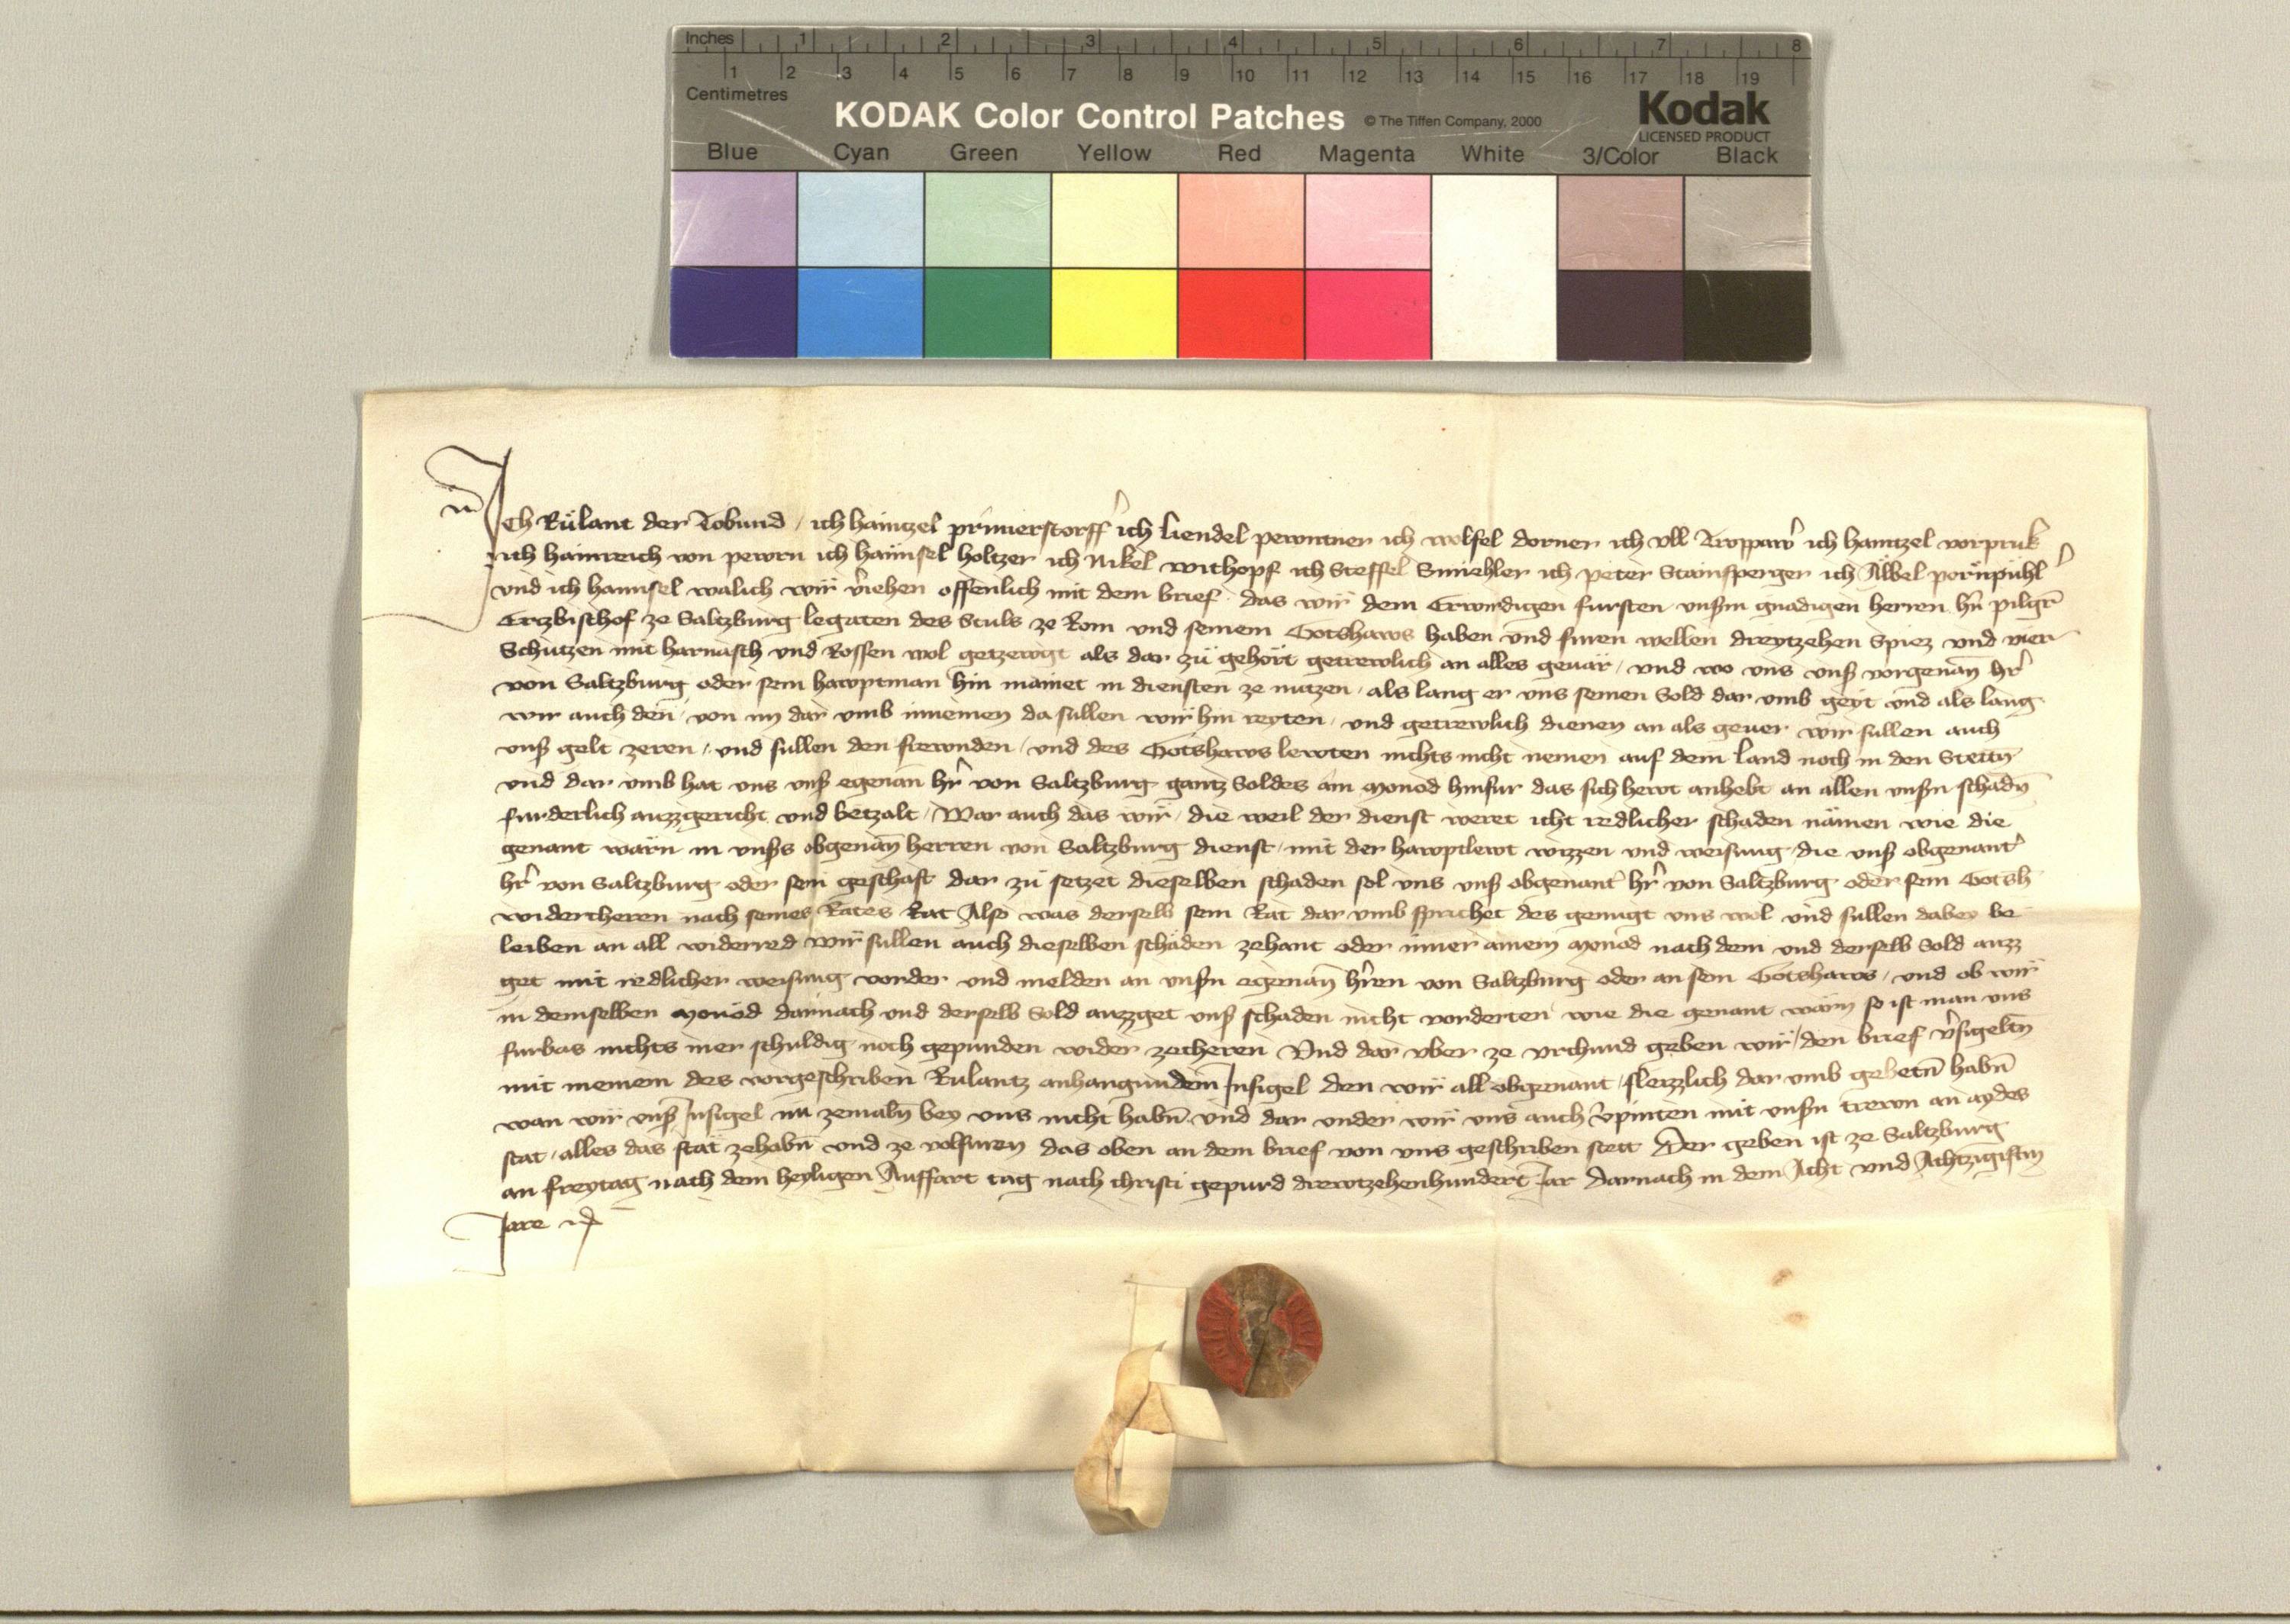 Inches 1 2 3 4 5 6 7 8
1 2 3 4 5 6 7 8 9 10 11 12 13 14 15 16 17 18 19
Centimetres
KODAK Color Control Patches © The Tiffen Company, 2000 Kodak
LICENSED PRODUCT
Blue Cyan Green Yellow Red Magenta White 3/Color Black
Ich Rülant der Tobund / ich haintzel ich Liendel ich wolfel dorner ich vll ich haintzel vorpruk
ich hainreich von pewrn ich hännsel holtzer ich Nikel withopf ich Steffel Smiehler ich peter Stainsperger ich Älbel
vnd ich hannsel walich wir v̂iehen offenlich mit dem brief das wir dem Erwirdigen fursten vnßm gnadigen herren hn̂ pilgr̄
Ertzbischof ze Saltzburg legaten des Stuls ze Rom vnd seinem Gotshaws haben vnd furen wellen dreytzehen Spiez vnd vier
Schutzen mit harnasch vnd Rossen wol getzewgt als dar zü gehört getrewlich an alles geuär / vnd wo vns vnß vorgenan̄ hr̂
von Saltzburg oder sein hawptman hin mainet in diensten ze nutzen / als lang er vns seinen Sold dar vmb geyt vnd als lang
wir auch den von im dar vmb innemen da sullen wir hin reyten / vnd getrewlich dienen an als geuer wir sullen auch
vnß gelt zeren / vnd sullen den frewnden / vnd des Gotshaws lewten nichts nicht nemen auf dem Land noch in den Stettn̄
vnd dar vmb hat vns vnß egenan̄ hr̂ von Saltzburg gantz Soldes ain Monod hinfur das sich hewt anhebt an allen vnßn schadn̄
furderlich auzzgericht vnd betzalt / War auch das wir / die weil der dienst weret icht redlicher schaden nämen wie die
genant wärn in vnßs obgenan̄ herren von Saltzburg dienst / mit der hawptlewt wizzen vnd weisung / die vnß obgenant̂
hr̂ von Saltzburg oder sein geschaft dar zü setzet dieselben schaden sol vns vnß obgenant̂ hr̂ von Saltzburg oder sein Gotsh
widercheren nach seines Rates Rat Also was derselb sein Rat dar vmb sprichet des genugt vns wol vnd sullen dabey be
leiben an all widerred wir sullen auch dieselben schäden zehant oder inner ainem Monod nach dem vnd derselb Sold auzz
get mit redlicher weisung vorder vnd melden an vnßn egenan̄ hr̂ren von Saltzburg oder an sein Gotshaws / vnd ob wir
in demselben Monod darnach vnd derselb Sold auzzget vnß schaden nicht vorderten wie die genant wärn so ist man vns
furbas nichts mer schuldig noch gepunden wider zecheren Vnd dar vber ze vrchund geben wir / den brief v̂sigeltn̄
mit meinem des vorgeschriben Rulantz anhangundem Insigel den wir all obgenant / fleizzlich dar vmb gebetn̄ habn̄
wan wir vnß̄ Insigel nu zemaln̄ bey vns nicht habn̄ vnd dar vnder wir vns auch v̂pinten mit vnßn trewn an aydes
stat / alles das stät zehabn̄ vnd ze volfuren das oben an dem brief von vns geschriben stett Der geben ist ze Saltzburg
an freytag nach dem heyligen Auffart tag nach christi gepurd drewtzehenhundert Iar Darnach in dem Acht vnd Achtzigistm̄
Jare